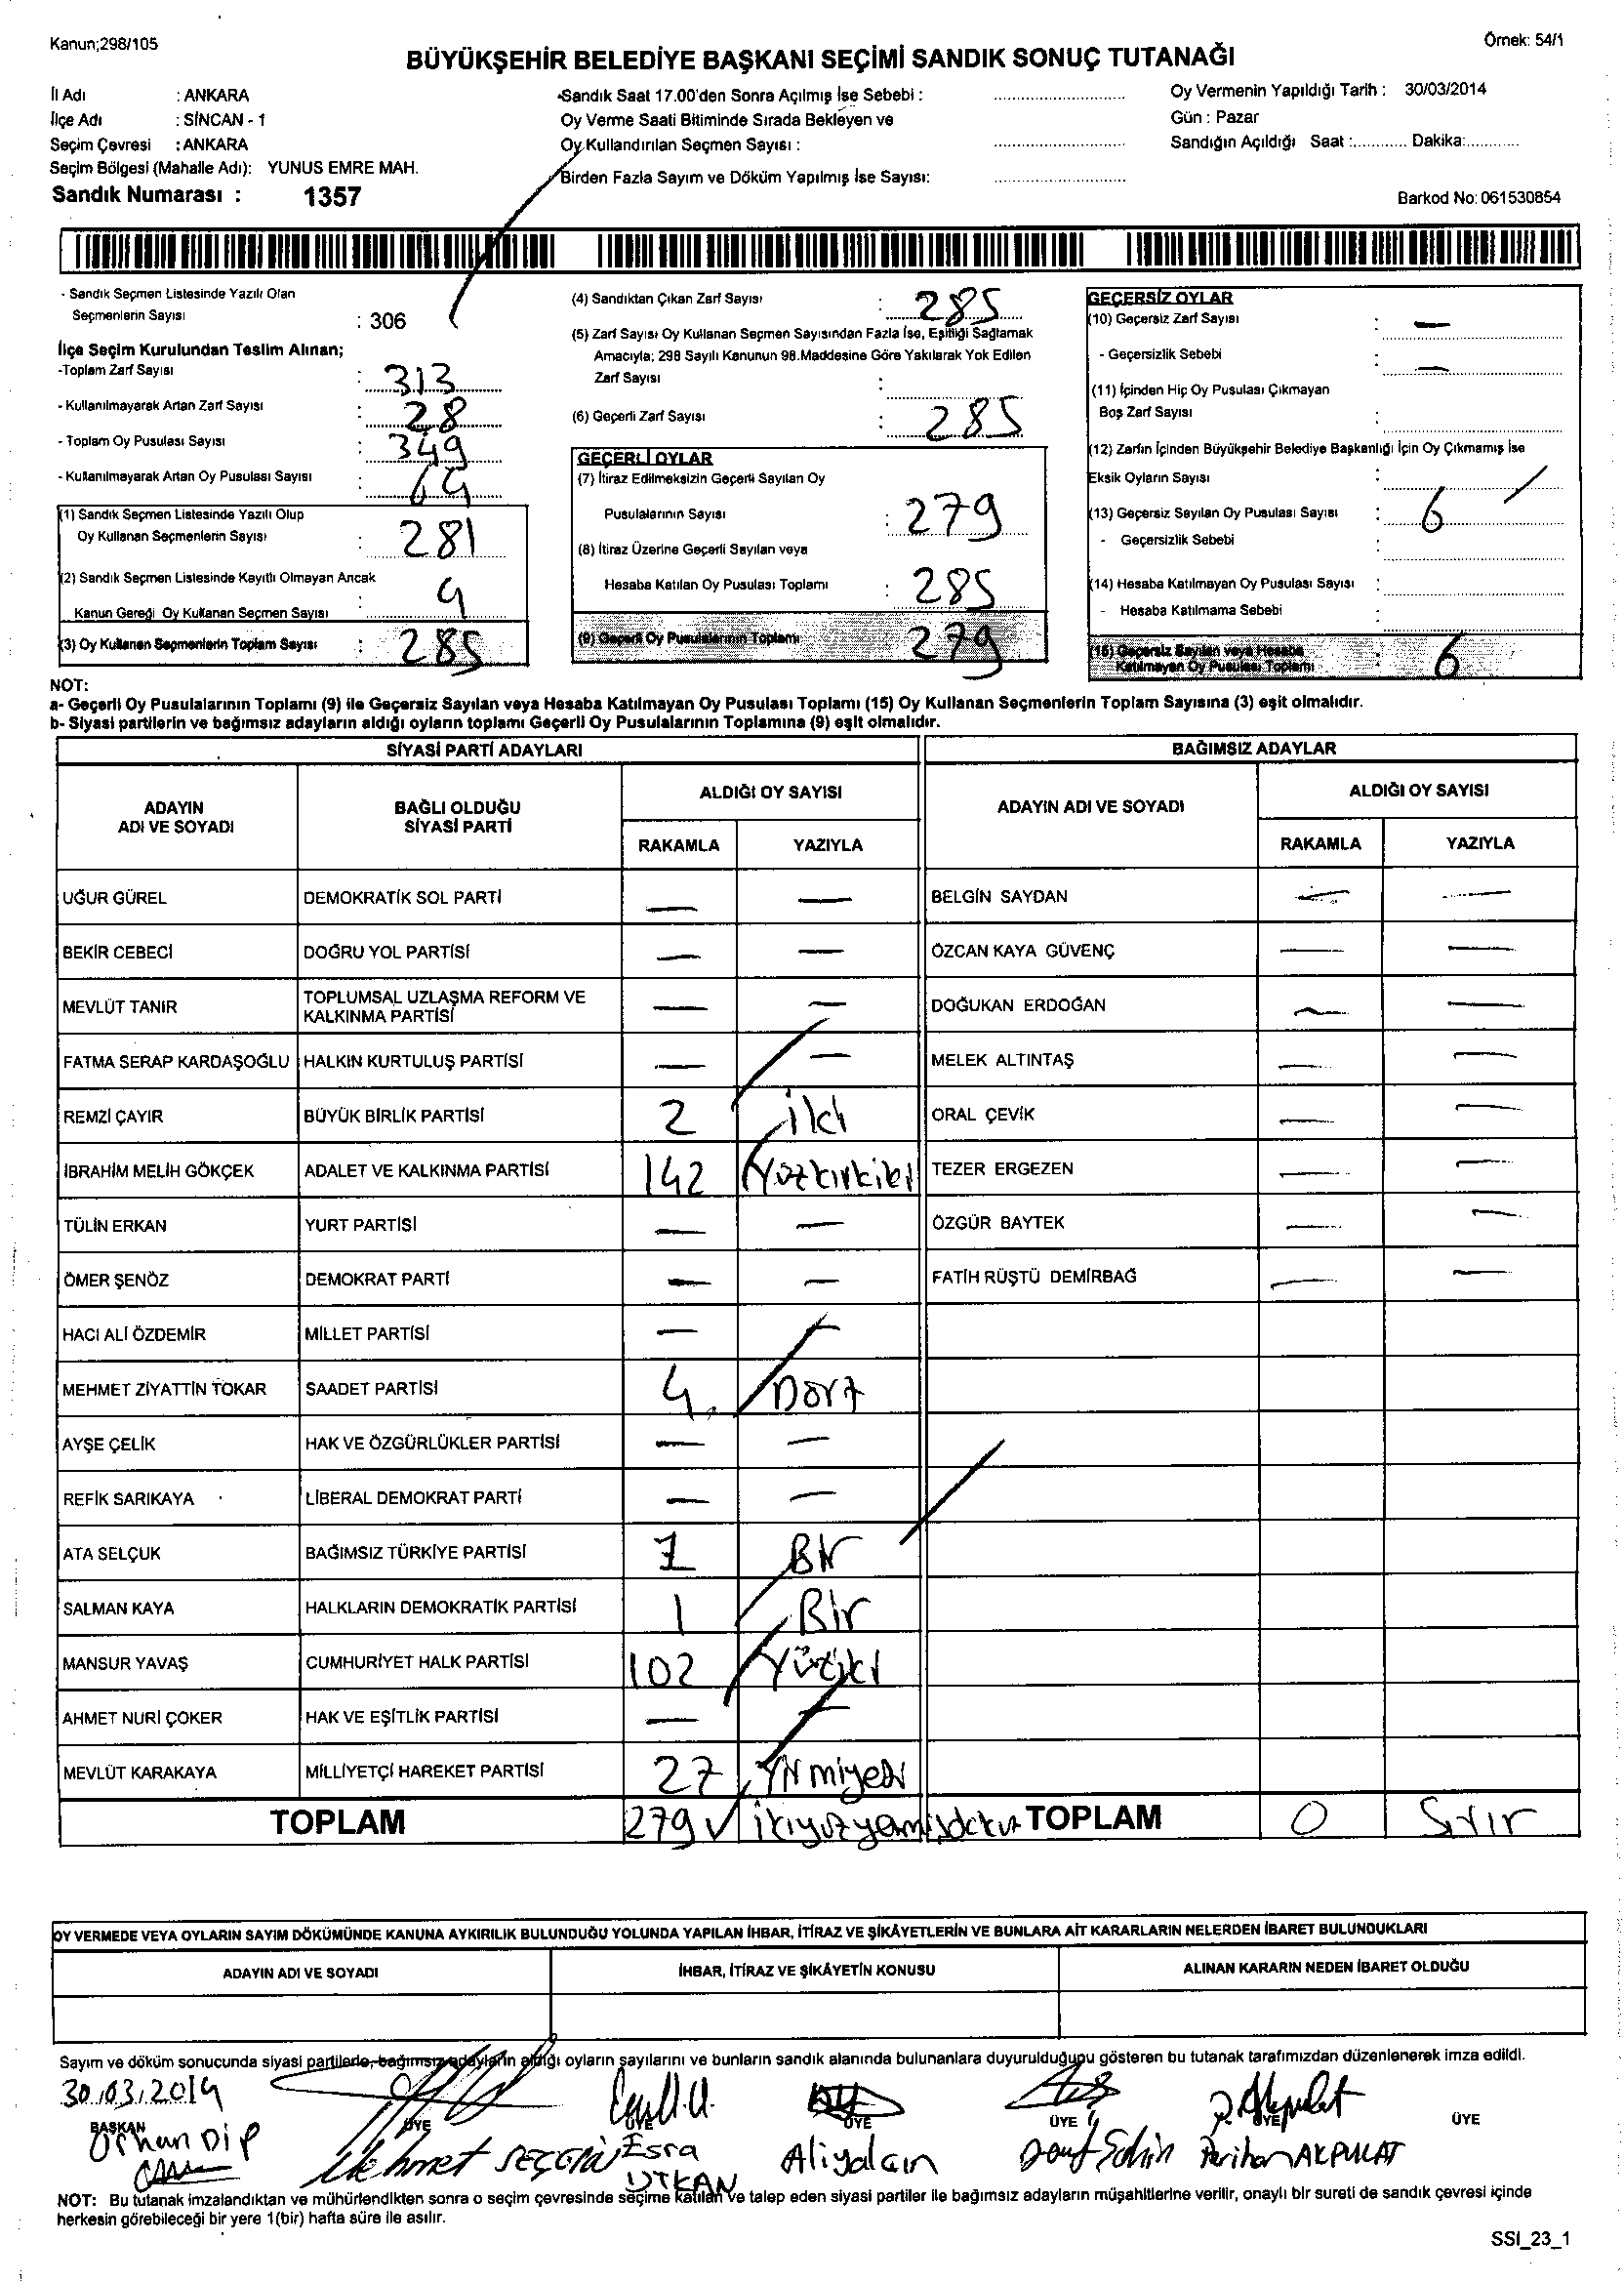 Kanun;298/105
Örnek: 54/1
BÜYÜKŞEHİR BELEDİYE BAŞKANI SEÇİMİ SANDIK SONUÇ TUTANAĞI
İl Adı : ANKARA
İlçe Adı : SİNCAN - 1
Seçim Çevresi : ANKARA
Seçim Bölgesi (Mahalle Adı): YUNUS EMRE MAH.
Sandık Numarası : 1357
Sandık Saat 17.00'den Sonra Açılmış İse Sebebi :
Oy Verme Saati Bitiminde Sırada Bekleyen ve
Oy Kullandırılan Seçmen Sayısı :
Birden Fazla Sayım ve Döküm Yapılmış İse Sayısı:
Oy Vermenin Yapıldığı Tarih : 30/03/2014
Gün : Pazar
Sandığın Açıldığı Saat :............ Dakika:............
Barkod No: 061530854
- Sandık Seçmen Listesinde Yazılı Olan
Seçmenlerin Sayısı : 306
İlçe Seçim Kurulundan Teslim Alınan;
-Toplam Zarf Sayısı : 313
- Kullanılmayarak Artan Zarf Sayısı : 28
- Toplam Oy Pusulası Sayısı : 349
- Kullanılmayarak Artan Oy Pusulası Sayısı : 64
(1) Sandık Seçmen Listesinde Yazılı Olup
Oy Kullanan Seçmenlerin Sayısı : 281
(2) Sandık Seçmen Listesinde Kayıtlı Olmayan Ancak
Kanun Gereği Oy Kullanan Seçmen Sayısı : 4
(3) Oy Kullanan Seçmenlerin Toplam Sayısı : 285
(4) Sandıktan Çıkan Zarf Sayısı : 285
(5) Zarf Sayısı Oy Kullanan Seçmen Sayısından Fazla İse, Eşitliği Sağlamak
Amacıyla; 298 Sayılı Kanunun 98.Maddesine Göre Yakılarak Yok Edilen
Zarf Sayısı :
(6) Geçerli Zarf Sayısı : 285
GEÇERLİ OYLAR
(7) İtiraz Edilmeksizin Geçerli Sayılan Oy
Pusulalarının Sayısı : 279
(8) İtiraz Üzerine Geçerli Sayılan veya
Hesaba Katılan Oy Pusulası Toplamı : 285
(9) Geçerli Oy Pusulalarının Toplamı 279
GEÇERSİZ OYLAR
(10) Geçersiz Zarf Sayısı : —
- Geçersizlik Sebebi : —
(11) İçinden Hiç Oy Pusulası Çıkmayan
Boş Zarf Sayısı :
(12) Zarfın İçinden Büyükşehir Belediye Başkanlığı İçin Oy Çıkmamış İse
Eksik Oyların Sayısı :
(13) Geçersiz Sayılan Oy Pusulası Sayısı : 6
- Geçersizlik Sebebi :
(14) Hesaba Katılmayan Oy Pusulası Sayısı :
- Hesaba Katılmama Sebebi :
(15) Geçersiz Sayılan veya Hesaba
Katılmayan Oy Pusulası Toplamı : 6
NOT:
a- Geçerli Oy Pusulalarının Toplamı (9) ile Geçersiz Sayılan veya Hesaba Katılmayan Oy Pusulası Toplamı (15) Oy Kullanan Seçmenlerin Toplam Sayısına (3) eşit olmalıdır.
b- Siyasi partilerin ve bağımsız adayların aldığı oyların toplamı Geçerli Oy Pusulalarının Toplamına (9) eşit olmalıdır.
SİYASİ PARTİ ADAYLARI BAĞIMSIZ ADAYLAR
ADAYIN ADI VE SOYADI BAĞLI OLDUĞU SİYASİ PARTİ ALDIĞI OY SAYISI RAKAMLA YAZIYLA
ADAYIN ADI VE SOYADI ALDIĞI OY SAYISI RAKAMLA YAZIYLA
UĞUR GÜREL DEMOKRATİK SOL PARTİ — — BELGİN SAYDAN — —
BEKİR CEBECİ DOĞRU YOL PARTİSİ — — ÖZCAN KAYA GÜVENÇ — —
MEVLÜT TANIR TOPLUMSAL UZLAŞMA REFORM VE KALKINMA PARTİSİ — — DOĞUKAN ERDOĞAN — —
FATMA SERAP KARDAŞOĞLU HALKIN KURTULUŞ PARTİSİ — — MELEK ALTINTAŞ — —
REMZİ ÇAYIR BÜYÜK BİRLİK PARTİSİ 2 iki ORAL ÇEVİK — —
İBRAHİM MELİH GÖKÇEK ADALET VE KALKINMA PARTİSİ 142 Yüzkırkiki TEZER ERGEZEN — —
TÜLİN ERKAN YURT PARTİSİ — — ÖZGÜR BAYTEK — —
ÖMER ŞENÖZ DEMOKRAT PARTİ — — FATİH RÜŞTÜ DEMİRBAĞ — —
HACI ALİ ÖZDEMİR MİLLET PARTİSİ — —
MEHMET ZİYATTİN TOKAR SAADET PARTİSİ 4 Dört
AYŞE ÇELİK HAK VE ÖZGÜRLÜKLER PARTİSİ — —
REFİK SARIKAYA LİBERAL DEMOKRAT PARTİ — —
ATA SELÇUK BAĞIMSIZ TÜRKİYE PARTİSİ 1 Bir
SALMAN KAYA HALKLARIN DEMOKRATİK PARTİSİ 1 Bir
MANSUR YAVAŞ CUMHURİYET HALK PARTİSİ 102 Yüziki
AHMET NURİ ÇOKER HAK VE EŞİTLİK PARTİSİ — —
MEVLÜT KARAKAYA MİLLİYETÇİ HAREKET PARTİSİ 27 Yirmiyedi
TOPLAM 279 ikiyüzyetmişdokuz TOPLAM 0 Sıfır
OY VERMEDE VEYA OYLARIN SAYIM DÖKÜMÜNDE KANUNA AYKIRILIK BULUNDUĞU YOLUNDA YAPILAN İHBAR, İTİRAZ VE ŞİKÂYETLERİN VE BUNLARA AİT KARARLARIN NELERDEN İBARET BULUNDUKLARI
ADAYIN ADI VE SOYADI İHBAR, İTİRAZ VE ŞİKÂYETİN KONUSU ALINAN KARARIN NEDEN İBARET OLDUĞU
Sayım ve döküm sonucunda siyasi partilerle, bağımsız adayların aldığı oyların sayılarını ve bunların sandık alanında bulunanlara duyurulduğunu gösteren bu tutanak tarafımızdan düzenlenerek imza edildi.
30.03.2014
BAŞKAN ÜYE ÜYE ÜYE ÜYE ÜYE ÜYE
Orhan Dip Mehmet Esra UTKAN Ali Şahin Perihan AKPULAT
NOT: Bu tutanak imzalandıktan ve mühürlendikten sonra o seçim çevresinde seçime katılan ve talep eden siyasi partiler ile bağımsız adayların müşahitlerine verilir, onaylı bir sureti de sandık çevresi içinde
herkesin görebileceği bir yere 1(bir) hafta süre ile asılır.
SSI_23_1